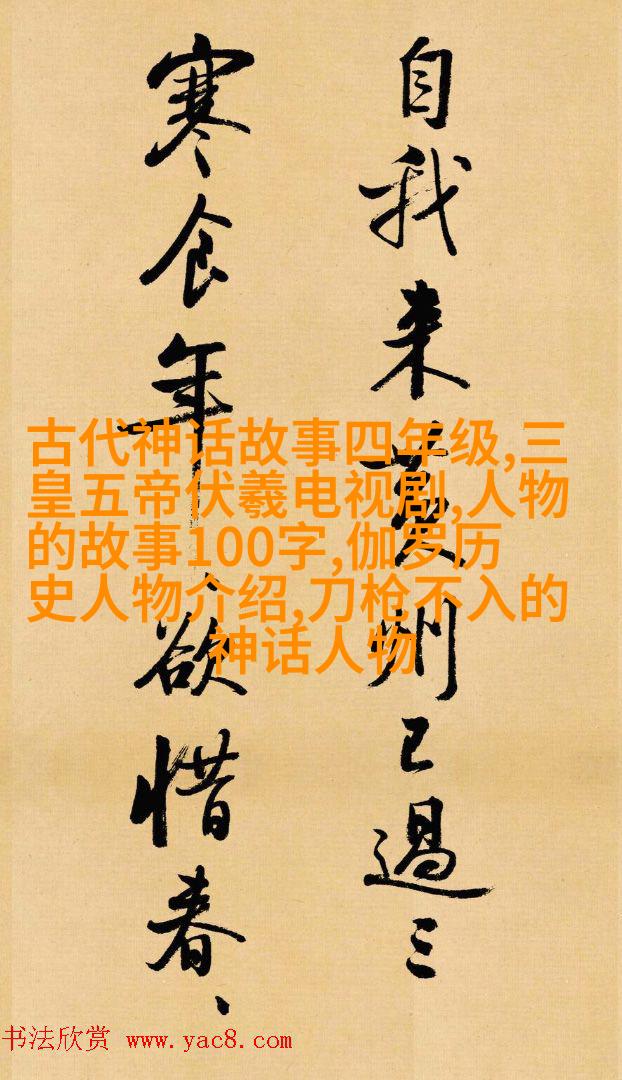 自我来黄州已過三
寒食年、欲惜春、
古代神话故事四年级,三
皇五帝伏羲电视剧,人物
的故事100字,伽罗历
史人物介绍,刀枪不入的
神话人物
书法欣赏 www.yac8.com